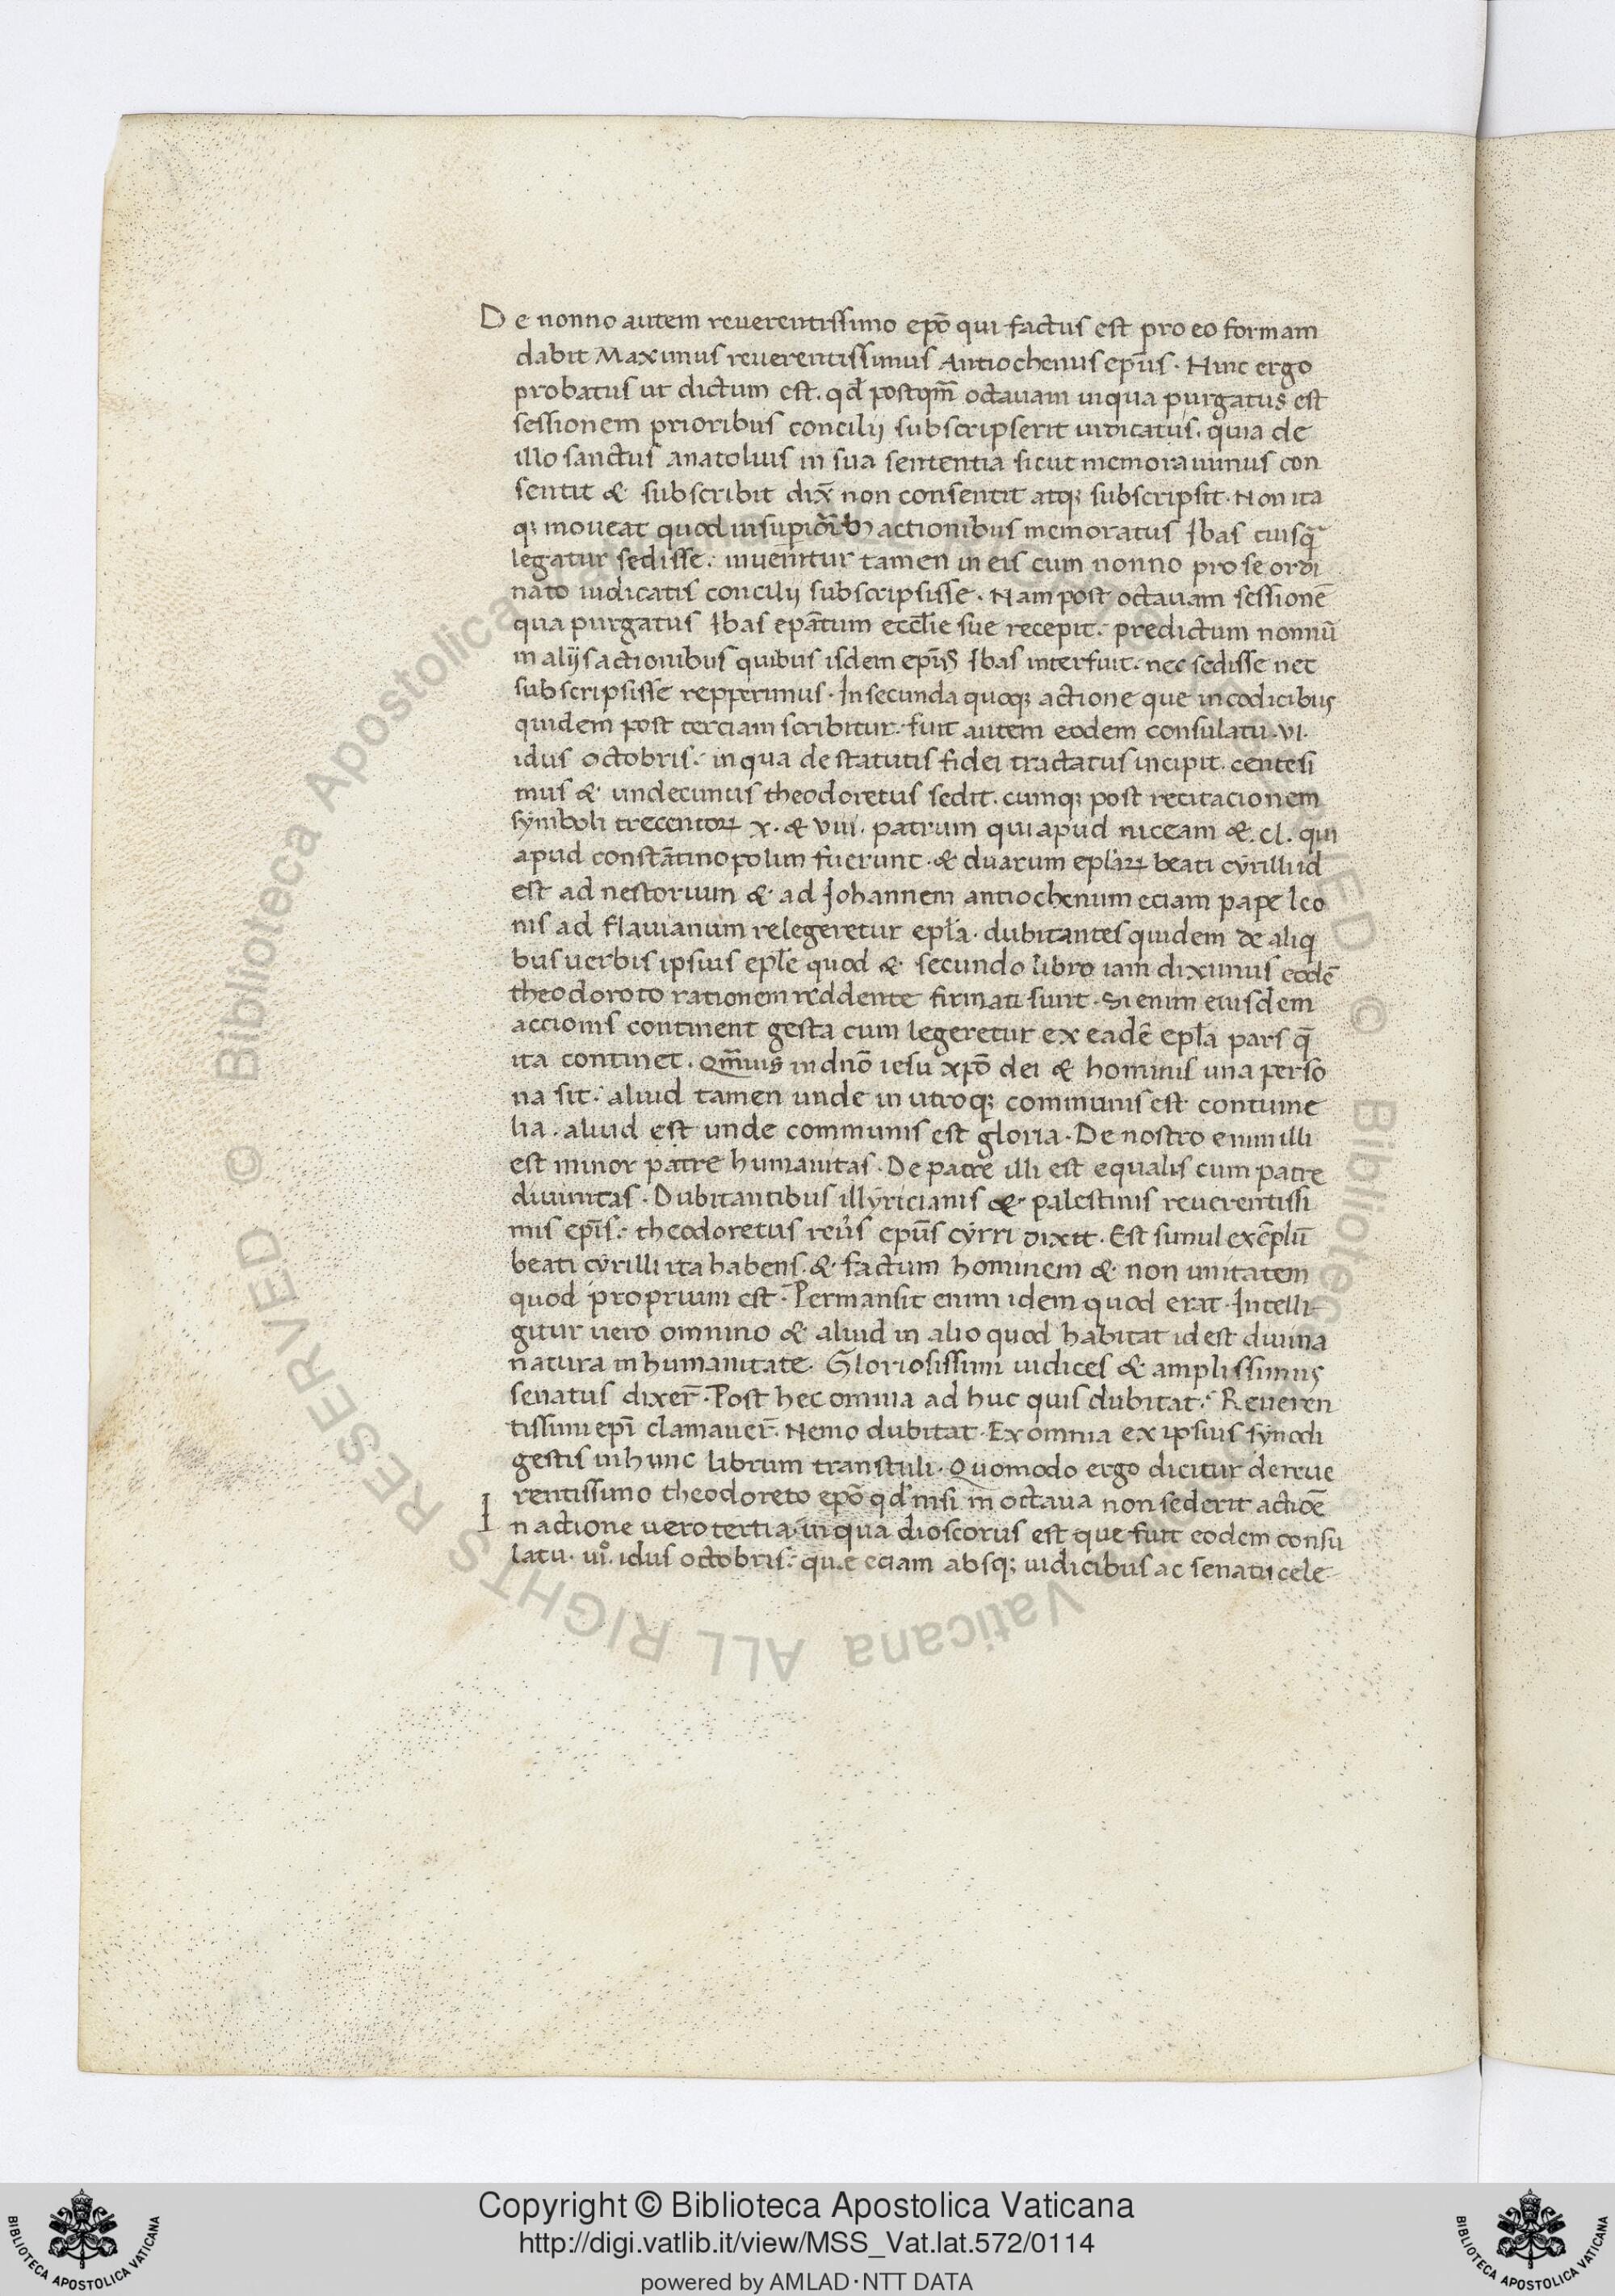 De nonno autem reuerentissimo ep̄o qui factus est pro eo formam
dabit Maximus reuerentissimus Antiochenus ep̄us. Hinc ergo
probatus ut dictum est. qđ postqm̄ octauam in qua purgatus est
sessionem prioribus concilij subscripserit iudicatis. quia de
illo sanctus anatolius in sua sententia sicut memorauimus con
sentit & subscribit dix̄ non consentit atq; subscripsit. Non ita
q; moueat quod in supioribꝫ actionibus memoratus Ibas cuisq̄
legatur sedisse. inuenitur tamen in eis cum nonno pro se ordi
nato iudicatis concilij subscripsisse. Nam post octauam sessionē
qua purgatus Ibas ep̄atum eccl̄ie sue recepit. predictum nonnū
in alijs actionibus quibus isdem ep̄is Ibas interfuit. nec sedisse nec
subscripsisse repperimus. In secunda quoq; actione que in codicibus
quidem post terciam scribitur. fuit autem eodem consulatu. VI.
idus octobris. in qua de statutis fidei tractatus incipit. centesi
mus & undecimus theodoretus sedit. cumq; post recitacionem
symboli trecentoꝝ x. & viii. patrum qui apud niceam &. cl. qui
apud constātinopolim fuerunt. & duarum epl̄aꝝ beati cyrilli id
est ad nestorium & ad Johannem antiochenum eciam pape leo
nis ad flauianum relegeretur epl̄a. dubitantes quidem de aliq
bus uerbis ipsius epl̄e quod & secundo libro iam diximus eodē
theodoroto rationem reddente firmati sunt. Si enim eiusdem
accionis continent gesta cum legeretur ex eadē epl̄a pars q̄
ita continet. Qm̄uis in dn̄o iesu xp̄o dei & hominis una perso
na sit. aliud tamen unde in utroq; communis est contume
lia. aliud est unde communis est gloria. De nostro enim illi
est minor patre humanitas. De patre illi est equalis cum patre
diuinitas. Dubitantibus illyricianis & palestinis reuerentissi
mis ep̄is. theodoretus reu̓s ep̄us cyrri dixit. Est simul exēplū
beati cyrilli ita habens. & factum hominem & non unitatem
quod proprium est. Permansit enim idem quod erat. Intelli-
gitur uero omnino & aliud in alio quod habitat id est diuina
natura in humanitate. Gloriosissimi iudices & amplissimus
senatus dixer̄. Post hec omnia ad huc quis dubitat. Reueren
tissimi ep̄i clamauer̄. Nemo dubitat. Ex omnia ex ipsius synodi
gestis in hunc librum transtuli. Quomodo ergo dicitur de reue
rentissimo theodoreto ep̄o qđ nisi in octaua non sederit actiōe
In actione uero tertia. in qua dioscorus est que fuit eodem consu
latu. iii°. idus octobris. quæ eciam absq; iudicibus ac senatu cele-
Copyright © Biblioteca Apostolica Vaticana
http://digi.vatlib.it/view/MSS_Vat.lat.572/0114
powered by AMLAD·NTT DATA